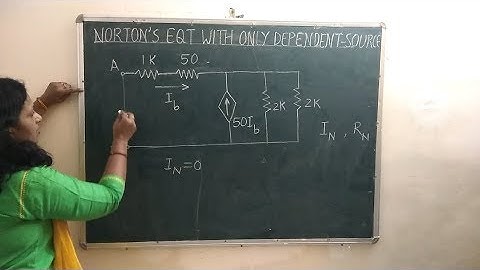 NORTON'S EQT WITH ONLY DEPENDENT-SOURCE
A 1K 50
I_b
50I_b 2K 2K
I_N , R_N
I_N=0